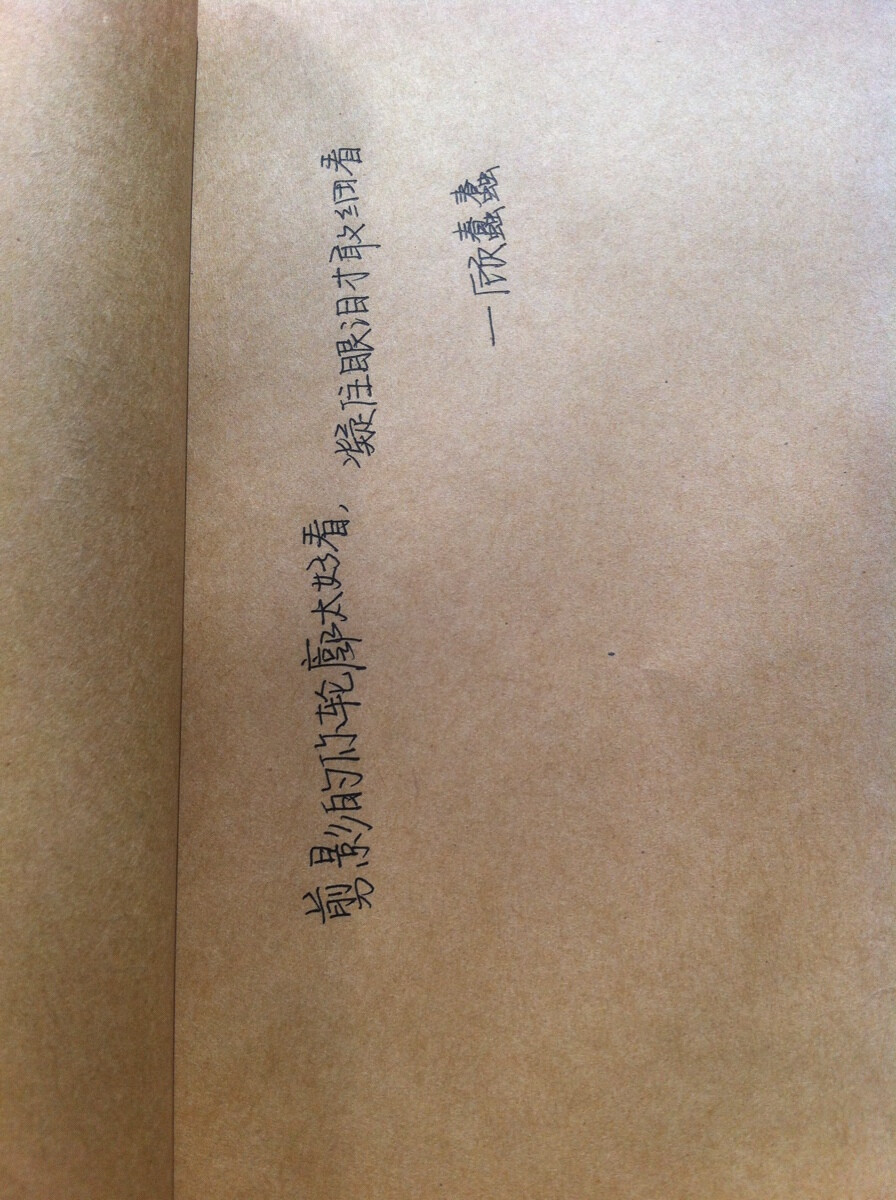 剪影的你轮廓太好看，凝住眼泪才敢细看
—顾蠢蠢